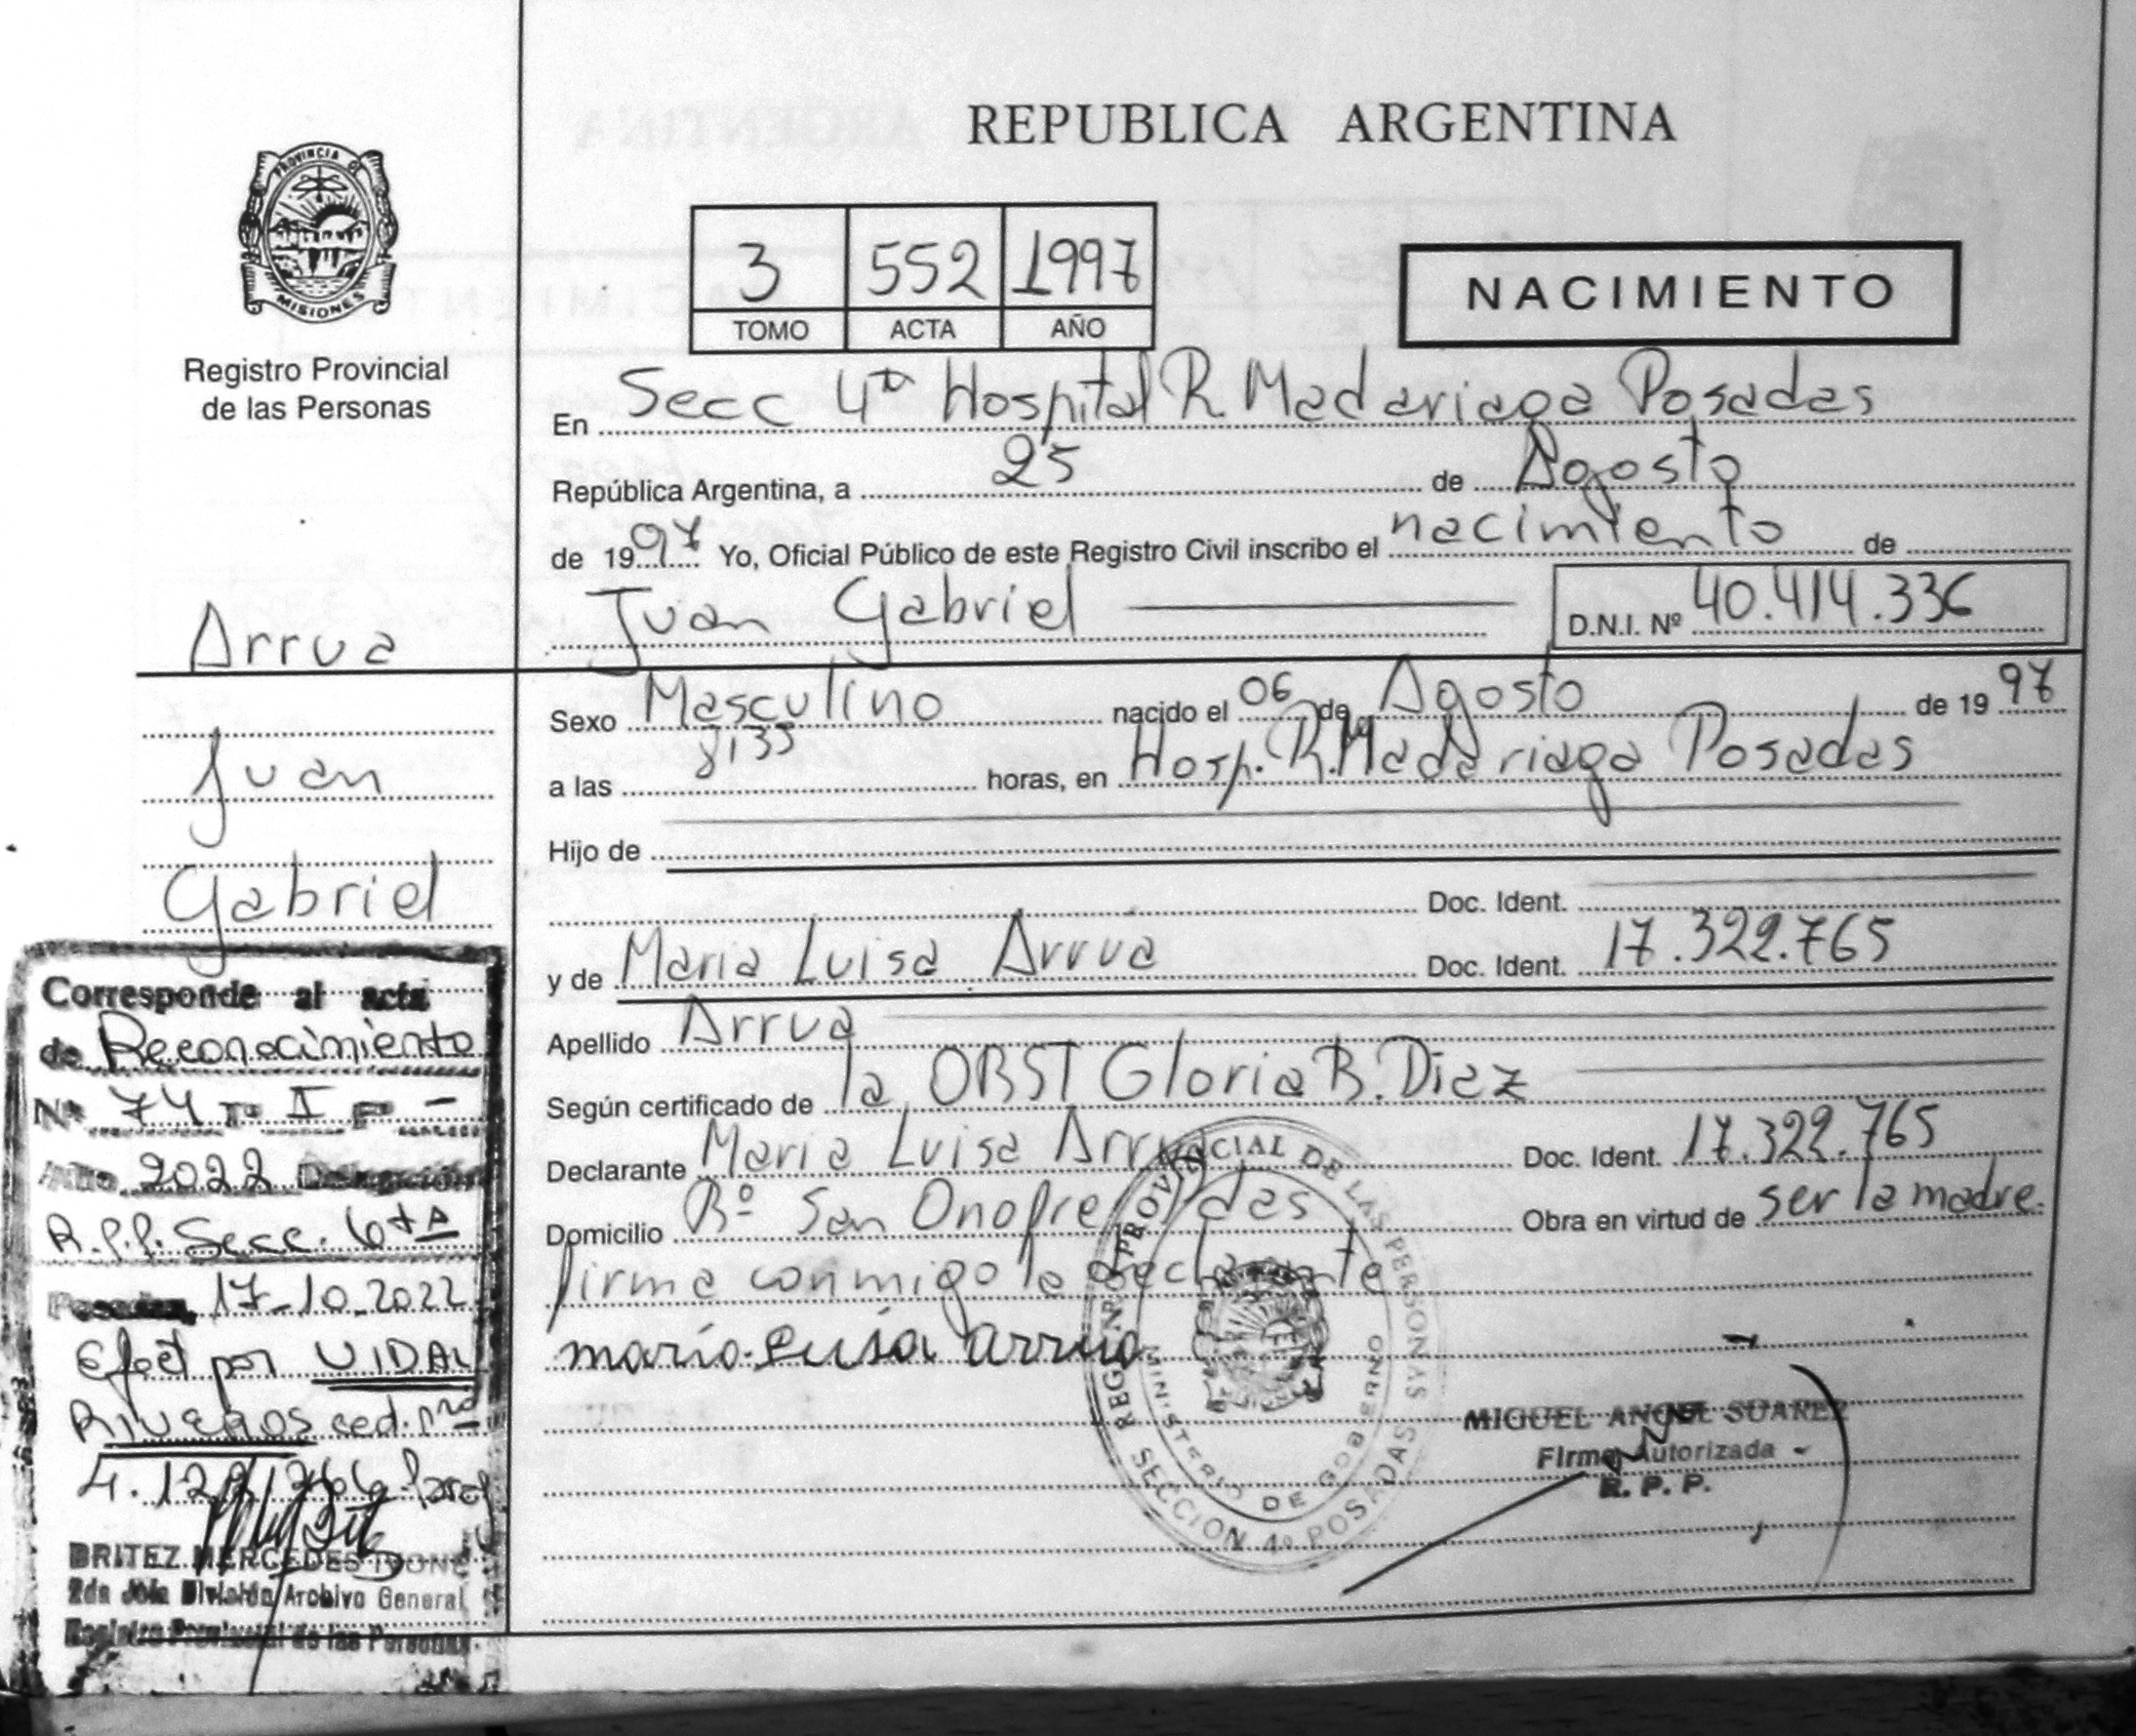 REPUBLICA ARGENTINA
PROVINCIA DE
MISIONES
Registro Provincial
de las Personas
3 552 1997
TOMO ACTA AÑO
NACIMIENTO
En Secc 4ta Hospital R. Madariaga Posadas
República Argentina, a 25 de Agosto
de 1997 Yo, Oficial Público de este Registro Civil inscribo el nacimiento de
Juan Gabriel D.N.I. Nº 40.414.336
Arrua
Juan
Gabriel
Sexo Masculino nacido el 06 de Agosto de 1997
a las horas, en Hosp. R. Madariaga Posadas
Hijo de
Doc. Ident.
y de Maria Luisa Arrua Doc. Ident. 17.322.765
Apellido Arrua
Según certificado de la OBST Gloria B. Diez
Declarante Maria Luisa Arrua Doc. Ident. 17.322.765
Domicilio Bº San Onofre Obra en virtud de ser la madre.
firma conmigo la declarante
maria Luisa Arrua
REGISTRO PROVINCIAL DE LAS PERSONAS
MINISTERIO DE GOBIERNO
SECCION 4º POSADAS
MIGUEL ANGEL SUAREZ
Firma Autorizada
R. P. P.
Corresponde al acta
de Reconocimiento
Nº 74 Tº I Fº -
Año 2022 Delegación
R.P.P. Secc. 6ta
Posadas, 17-10-2022
Efect por VIDAL
RIVEROS ced. nro
BRITEZ MERCEDES IVONE
2da Jefa División Archivo General
Registro Provincial de las Personas